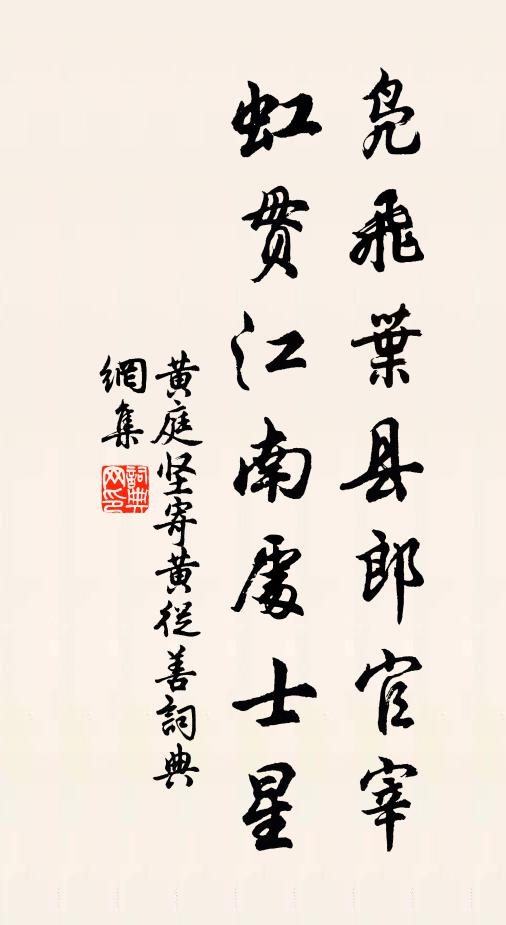 鳬飛葉县郎官宰
虹贯江南處士星
黄庭坚寄黄從善詞典
網集
詞典網印